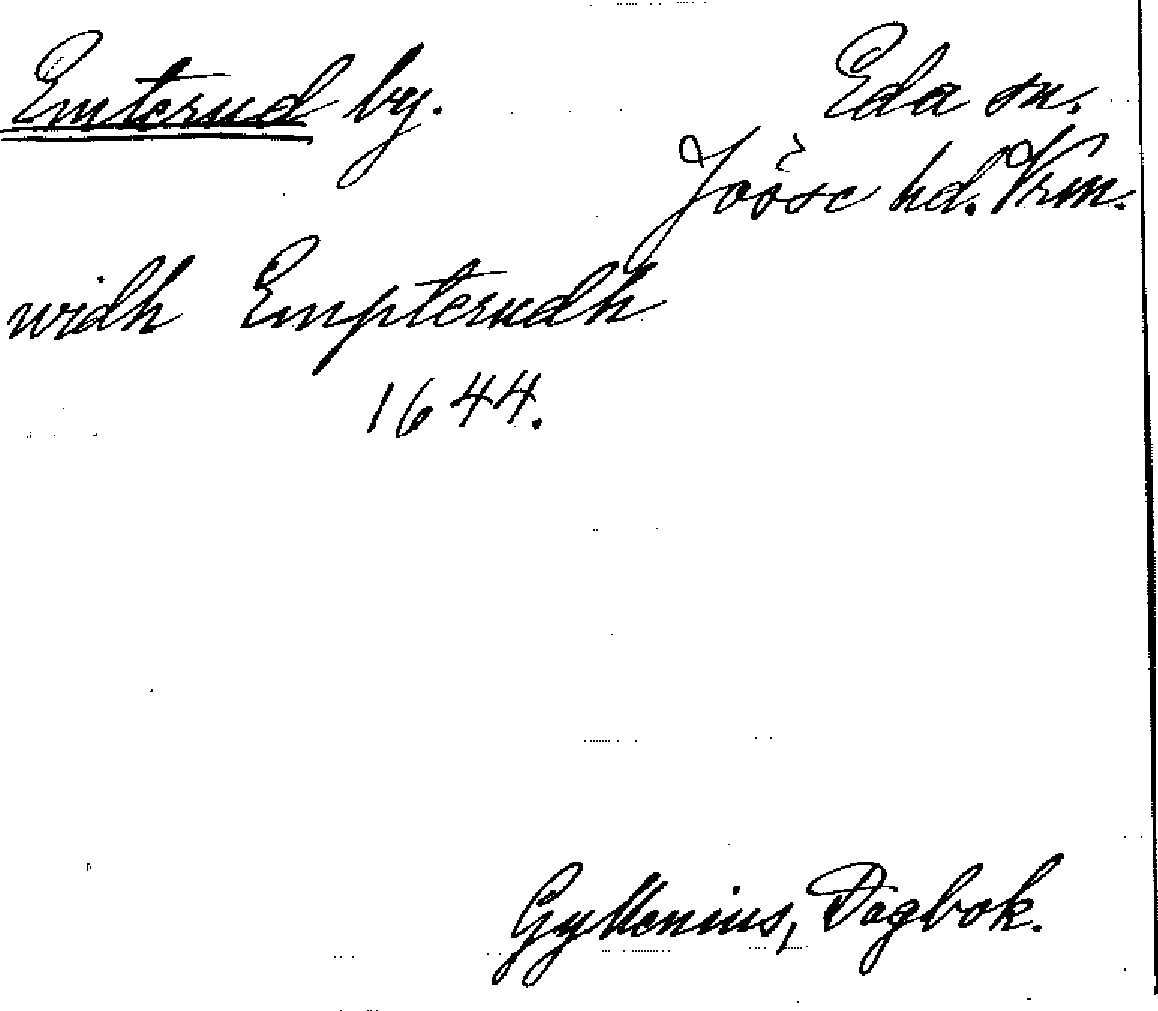 Emterud by.
Eda sn.
Jösse hd. Vrm.
widh Empterudh
1644.
Gyllenius, Dagbok.